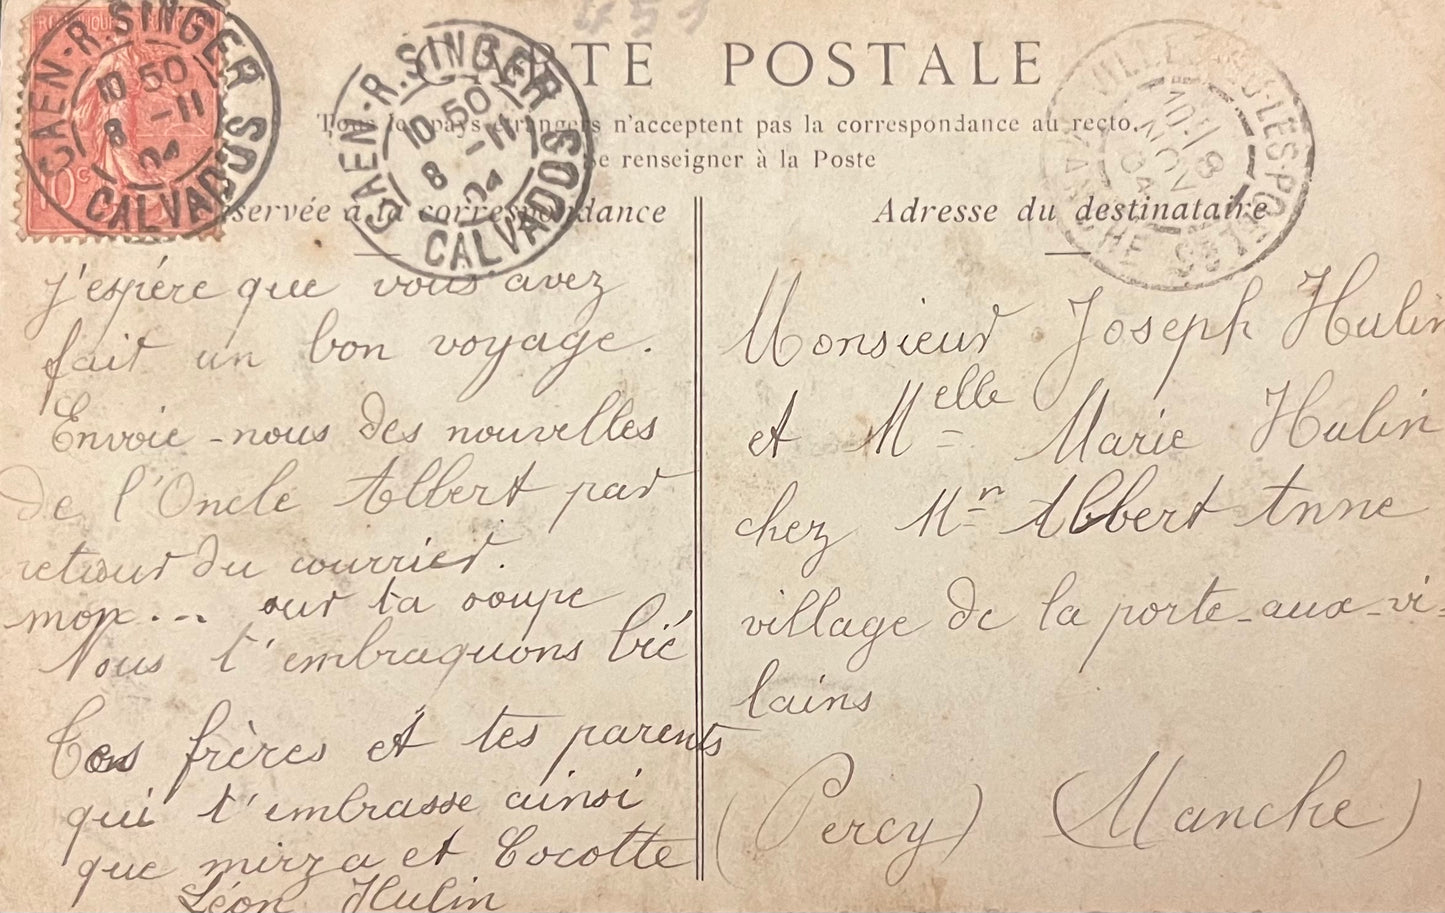 451
CARTE POSTALE
Tous les pays étrangers n'acceptent pas la correspondance au recto.
Se renseigner à la Poste
RÉPUBLIQUE
10c
CAEN-R. SINGER
10 50
8 -11
04
CALVADOS
CAEN-R. SINGER
10 50
8 -11
04
CALVADOS
VILLEDIEU-LES-POELES
10-11 8
NOV
04
MANCHE
réservée à la correspondance
Adresse du destinataire
J'espére que vous avez
fait un bon voyage.
Envoie-nous des nouvelles
de l'Oncle Albert par
retour du courrier.
mox... sur ta soupe
Nous t'embraquons bié
Tes frères et tes parents
qui t'embrasse ainsi
que mirza et Cocotte
Léon Hulin
Monsieur Joseph Hulin
et Melle Marie Hulin
chez Mr Albert Anne
village de la porte-aux-vi-
lains
(Percy) (Manche)